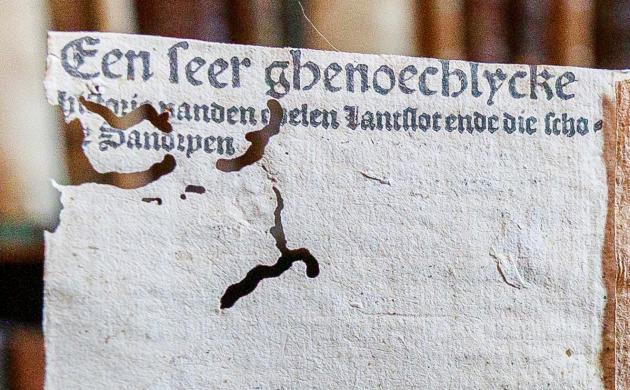 Een seer ghenoechlycke
historie vanden edelen Lantslot ende die scho-
Sandrpen